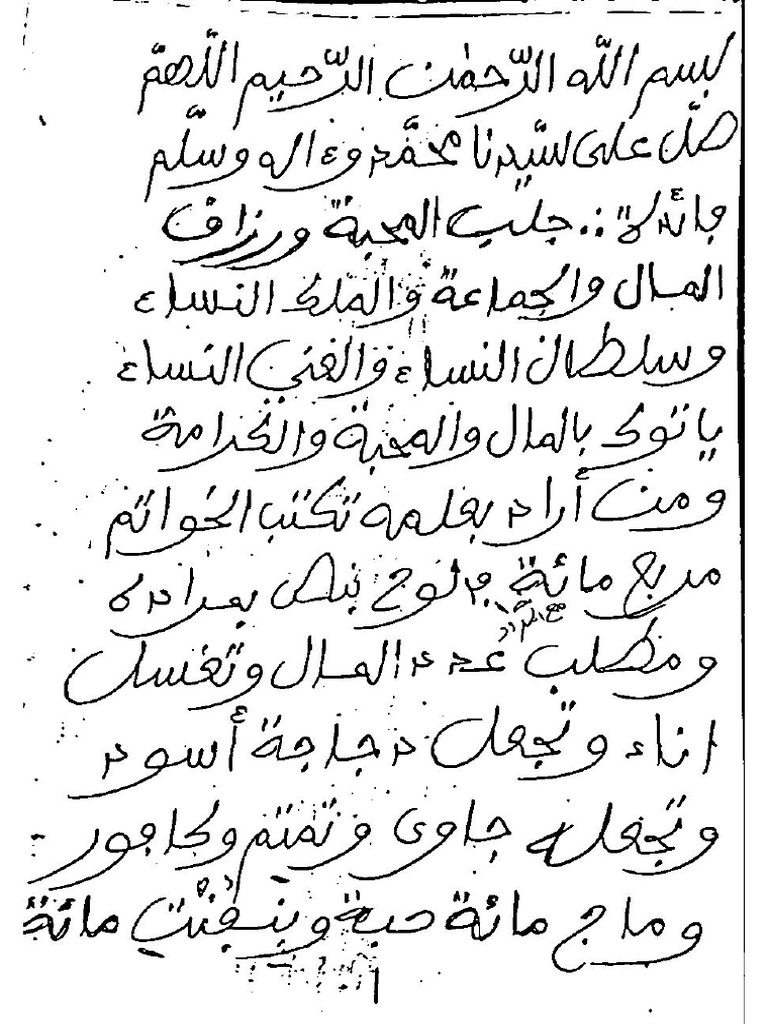 بسم الله الرّحمٰن الرّحيم اللّٰهمّ
صلّ على سيّدنا محمّد وءاله وسلّم
فائدة ∴ جلب المحبة ورزاق
المال والجماعة والملك النساء
وسلطان النساء والغني النساء
ياتوك بالمال والمحبة والكرامة
ومن أراد بعلمه تكتب الخواتم
مربع مائة في لوح بمراده
ومطلب عدد المال وتغسل
اناء وتجعل دجاجة أسود
وتجعله جاوى وتميتم وكافور
وماج مائة حبة مائة